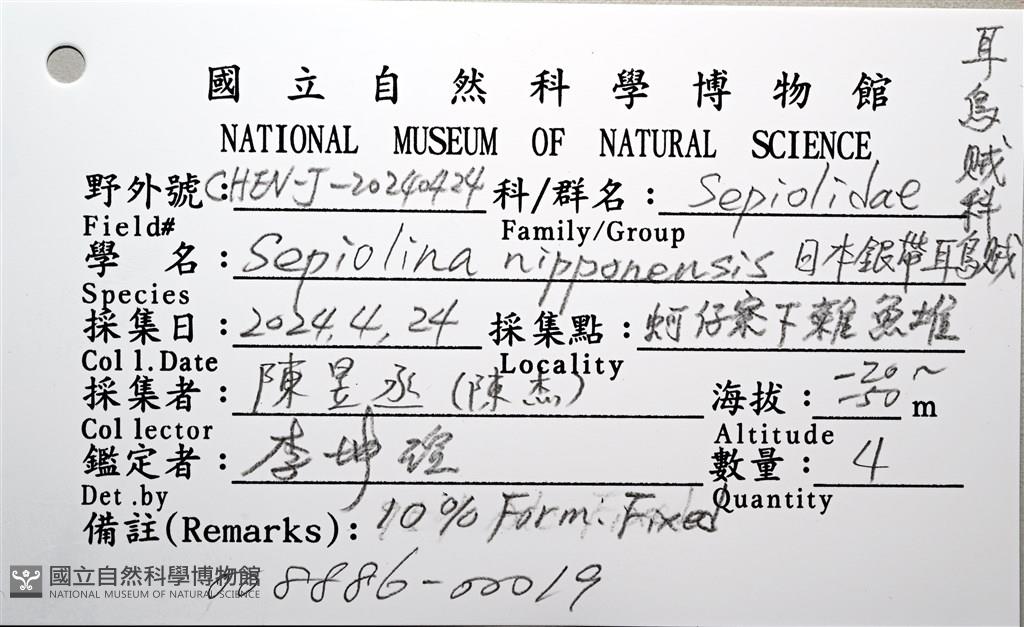 國立自然科學博物館
NATIONAL MUSEUM OF NATURAL SCIENCE
耳烏賊科
野外號:CHEN-J-20240424 科/群名: Sepiolidae
Field# Family/Group
學 名: Sepiolina nipponensis 日本銀帶耳烏賊
Species
採集日: 2024.4.24 採集點: 蚵仔寮下雜魚堆
Coll.Date Locality
採集者: 陳昱丞(陳杰) 海拔: -20~-50 m
Collector Altitude
鑑定者: 李坤瑄 數量: 4
Det.by Quantity
備註(Remarks): 10% Form. Fixed
008886-00019
國立自然科學博物館
NATIONAL MUSEUM OF NATURAL SCIENCE